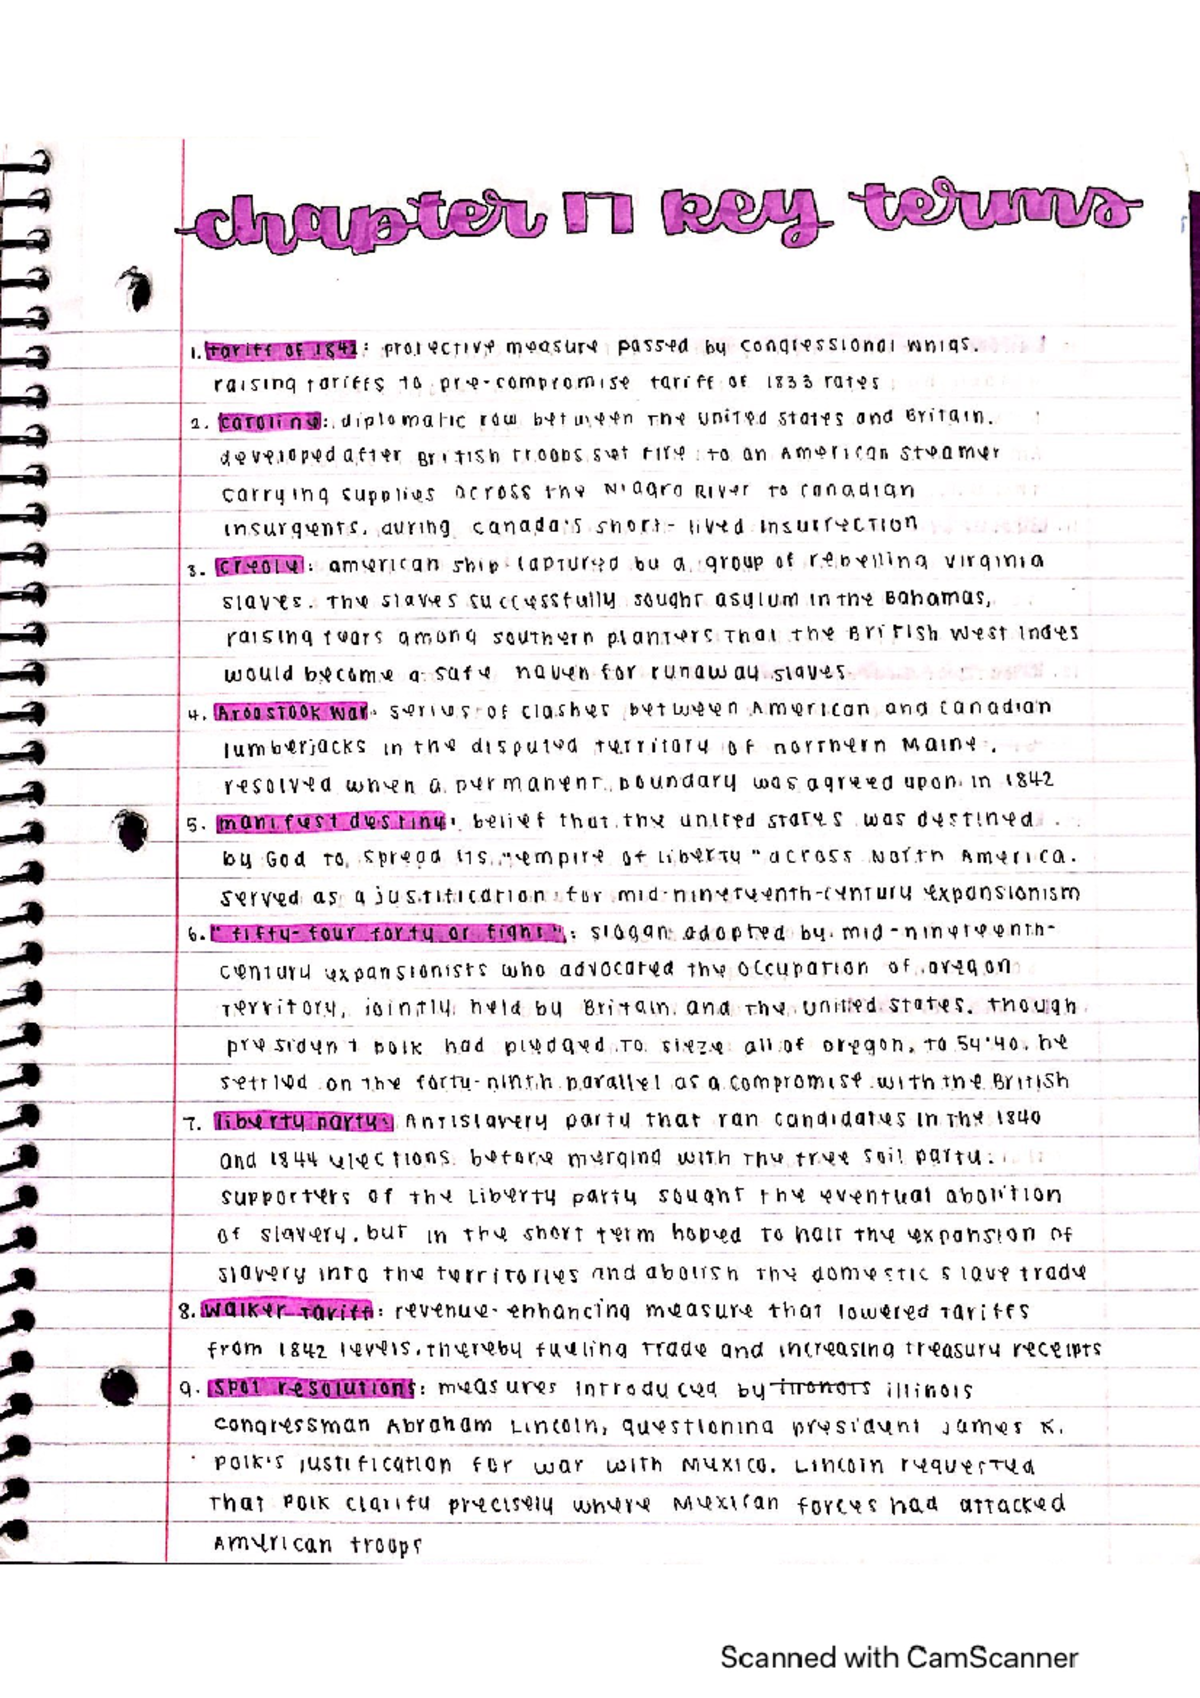 chapter 17 key terms
1. tariff of 1842: protective measure passed by congressional whigs.
raising tariffs to pre-compromise tariff of 1833 rates
2. caroline: diplomatic row between the united states and Britain.
developed after British troops set fire to an American steamer
carrying supplies across the Niagra River to canadian
insurgents, during canada's short-lived insurrection
3. creole: american ship captured by a group of rebelling virginia
slaves. The slaves successfully sought asylum in the Bahamas,
raising fears among southern planters that the British west indes
would become a safe haven for runaway slaves
4. Aroostook war: series of clashes between American and canadian
lumberjacks in the disputed territory of northern Maine,
resolved when a permanent boundary was agreed upon in 1842
5. manifest destiny: belief that the united states was destined
by God to spread its "empire of liberty" across North America.
served as a justification for mid-nineteenth-century expansionism
6. "fifty-four forty or fight": slogan adopted by mid-nineteenth-
century expansionists who advocated the occupation of oregon
territory, jointly held by Britain and the united states. though
president polk had pledged to sieze all of oregon, to 54°40, he
settled on the forty-ninth parallel as a compromise with the British
7. liberty party: Antislavery party that ran candidates in the 1840
and 1844 elections before merging with the free soil party.
supporters of the liberty party sought the eventual abolition
of slavery, but in the short term hoped to halt the expansion of
slavery into the territories and abolish the domestic slave trade
8. walker tariff: revenue-enhancing measure that lowered tariffs
from 1842 levels, thereby fueling trade and increasing treasury receipts
9. spot resolutions: measures introduced by illinois
congressman Abraham Lincoln, questioning president James K.
polk's justification for war with Mexico. Lincoln requested
that polk clarify precisely where Mexican forces had attacked
American troops
Scanned with CamScanner